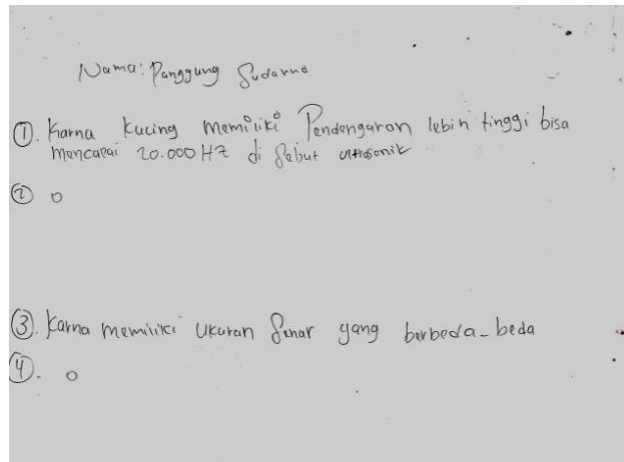 Nama: Panggung Sudarno
①. Karna kucing memiliki Pendengaran lebih tinggi bisa
mencapai 20.000 HZ di sebut ultrasonik
② 0
③. Karna memiliki ukuran Senar yang berbeda-beda
④. 0